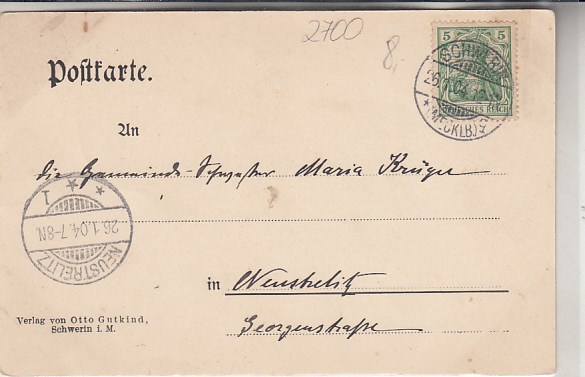 2700
8,
5 5
SCHWERIN
26.1.04.
* (MECKLB)
DEUTSCHES REICH
Postkarte.
An
die Gemeinde-Schwester Maria Krüger
* * * 1
26.1.04.7-8N.
NEUSTRELITZ
in Neustrelitz
Georgenstraße
Verlag von Otto Gutkind,
Schwerin i. M.